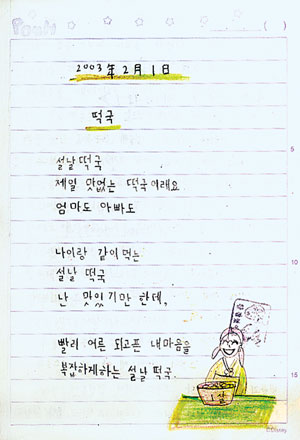 Pooh
( )
2003 年 2 月 1 日
떡국
설날 떡국
제일 맛없는 떡국 이래요
엄마도 아빠도
나이랑 같이 먹는
설날 떡국
난 맛있기만 한데,
빨리 어른 되고픈 내마음을
복잡하게하는 설날 떡국
5
10
15
1살
© Disney